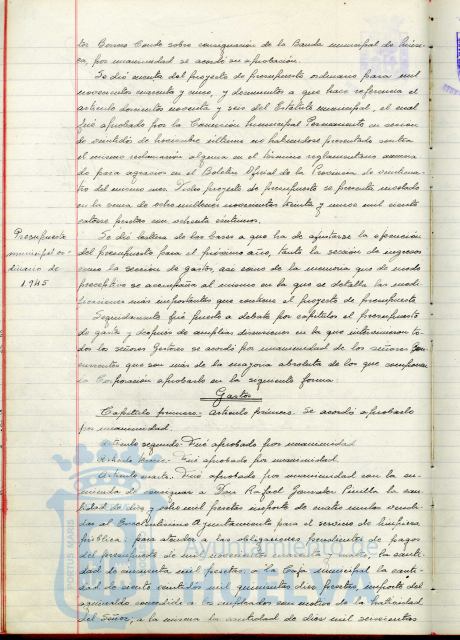 tor Borano Conde sobre consignación de la Banda municipal de Músi-
ca, por unanimidad se acordó su aprobación.
Se dió cuenta del proyecto de presupuesto ordinario para mil
novecientos cuarenta y cinco, y documentos a que hace referencia el
artículo doscientos noventa y seis del Estatuto municipal, el cual
fué aprobado por la Comisión Municipal Permanente en sesión
de veintidós de noviembre último no habiéndose presentado contra
el mismo reclamación alguna en el término reglamentario anuncia
do para agravios en el Boletín Oficial de la Provincia de veinticua-
tro del mismo mes. Dicho proyecto de presupuesto se presenta nivelado
en la suma de ocho millones novecientos treinta y nueve mil ciento
catorce pesetas con ochenta céntimos.
Presupuesto
municipal or-
dinario de
1.945
Se dió lectura de las bases a que ha de ajustarse la ejecución
del presupuesto para el próximo año, tanto la sección de ingresos
como la sección de gastos, así como de la memoria que de modo
preceptivo se acompaña al mismo en la que se detalla las modi-
ficaciones más importantes que contiene el proyecto de presupuesto.
Seguidamente fué puesto a debate por capítulos el presupuesto
de gastos y después de amplias discusiones en la que intervinieron to-
dos los señores Gestores se acordó por unanimidad de los señores con-
currentes que son más de la mayoría absoluta de los que componen
la Corporación aprobarlo en la siguiente forma:
Gastos
Capítulo primero.- Artículo primero. Se acordó aprobarlo
por unanimidad.
Artículo segundo.- Fué aprobado por unanimidad
Artículo tercero.- Fué aprobado por unanimidad.
Artículo cuarto. Fué aprobado por unanimidad con la en-
mienda de consignar a Don Rafael González Pinilla la can-
tidad de diez y ocho mil pesetas importe de cuatro mulas vendi-
das al Excelentísimo Ayuntamiento para el servicio de limpieza
pública: para atender a las obligaciones pendientes de pagos
del presupuesto de mil novecientos, la canti-
dad de cincuenta mil pesetas. a la Caja municipal la canti-
dad de ciento veintidos mil quinientas diez pesetas, importe del
aguinaldo concedido a los empleados con motivo de la Natividad
del Señor; a la misma la cantidad de diez mil seiscientas
Ayuntamiento de
PORTUS MARIS